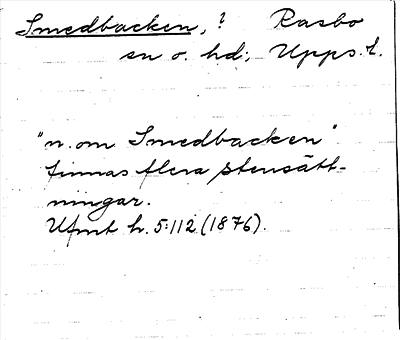 Smedbacken, ? Rasbo
sn o. hd; Upps. l.
"n. om Smedbacken"
finnas flera stensätt-
ningar.
Ufmt h. 5:112 (1876).